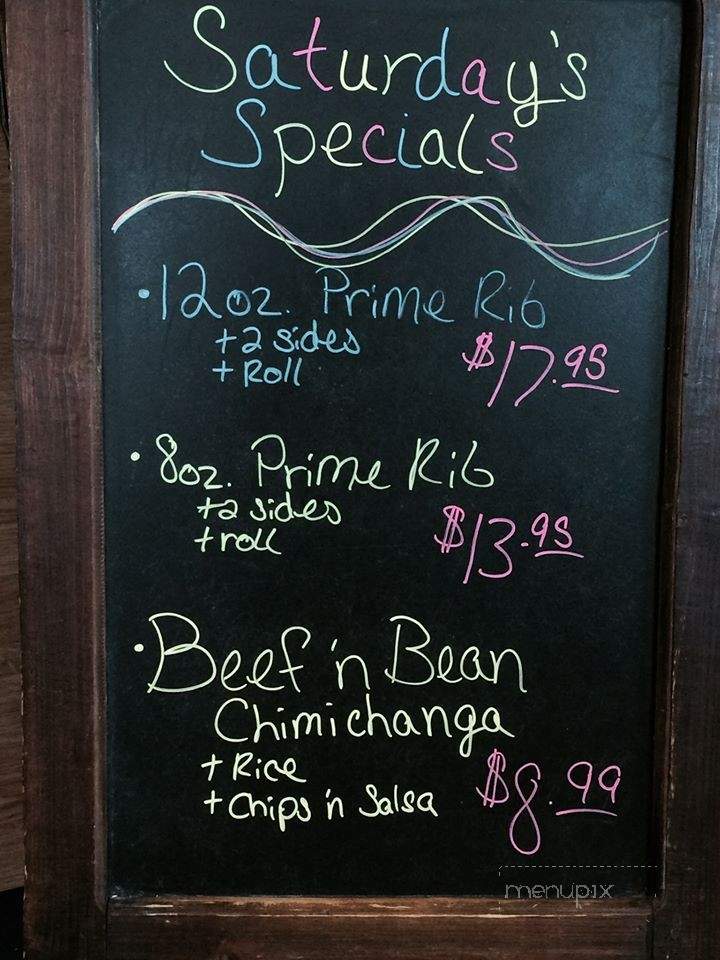 Saturday's
Specials
· 12oz. Prime Rib
+2 sides
+ Roll
$17.95
· 8oz. Prime Rib
+2 sides
+ roll
$13.95
· Beef 'n Bean
Chimichanga
+ Rice
+ Chips 'n Salsa
$8.99
menupix